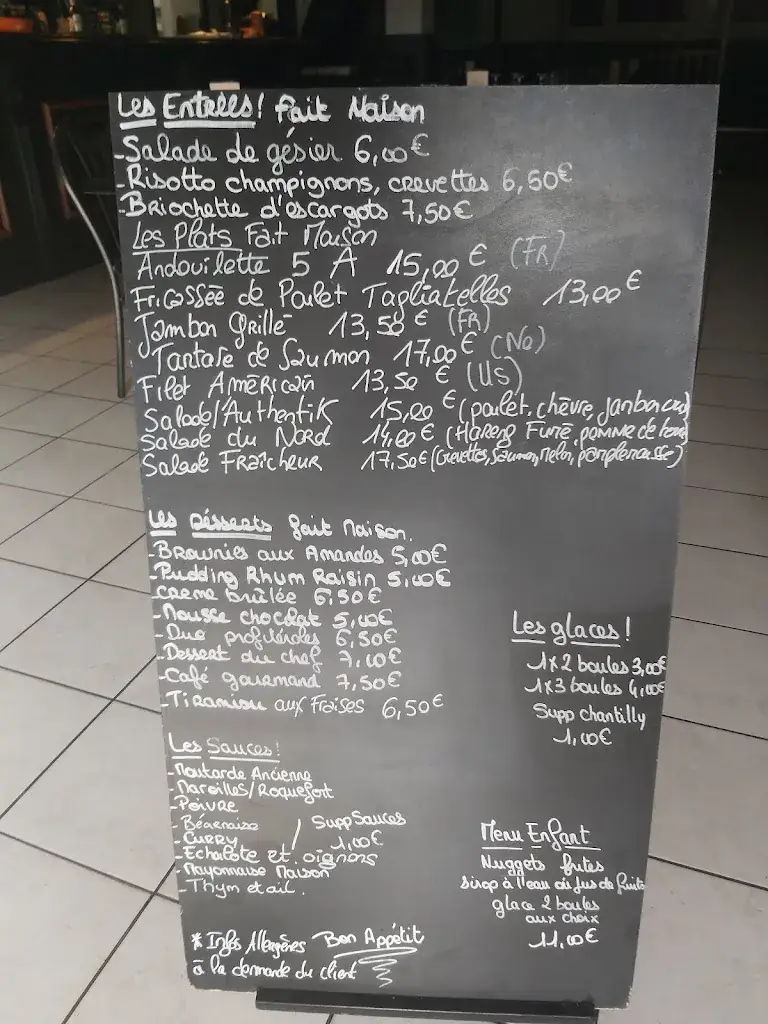 Les Entrées! Fait Maison
-Salade de gésier 6,00€
-Risotto champignons, crevettes 6,50€
-Briochette d'escargots 7,50€
Les Plats Fait Maison
Andouillette 5 A 15,00€ (FR)
Fricassée de Poulet Tagliatelles 13,00€
Jambon Grillé 13,50€ (FR)
Tartare de Saumon 17,00€ (No)
Filet Américain 13,50€ (US)
Salade l'Authentik 15,00€ (poulet, chèvre, jambon cru)
Salade du Nord 14,00€ (Hareng Fumé, pomme de terre)
Salade Fraîcheur 17,50€ (Crevettes, Saumon, Melon, pamplemousse)
Les Désserts fait Maison.
-Brownies aux Amandes 5,00€
-Pudding Rhum Raisin 5,00€
-crème brûlée 6,50€
-Mousse chocolat 5,00€
-Duo profiteroles 6,50€
-Dessert du chef 7,00€
-Café gourmand 7,50€
-Tiramisu aux Fraises 6,50€
Les glaces!
1x2 boules 3,00€
1x3 boules 4,00€
Supp chantilly
1,00€
Les Sauces!
-Moutarde Ancienne
-Maroilles/Roquefort
-Poivre
-Béarnaise
-Curry
-Echalote et oignons
-Mayonnaise Maison
-Thym et ail.
Supp Sauces
1,00€
Menu Enfant
Nuggets frites
Sirop à l'eau ou jus de fruits
glace 2 boules
aux choix
11,00€
* Infos Allergènes Bon Appétit
à la demande du client